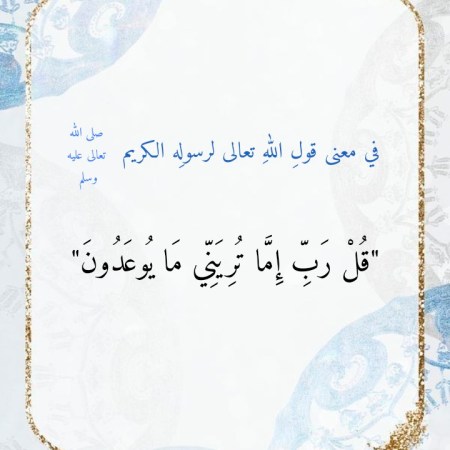 في معنى قولِ اللهِ تعالى لرسولِه الكريم صلى الله تعالى عليه وسلم
"قُلْ رَبِّ إِمَّا تُرِيَنِّي مَا يُوعَدُونَ"